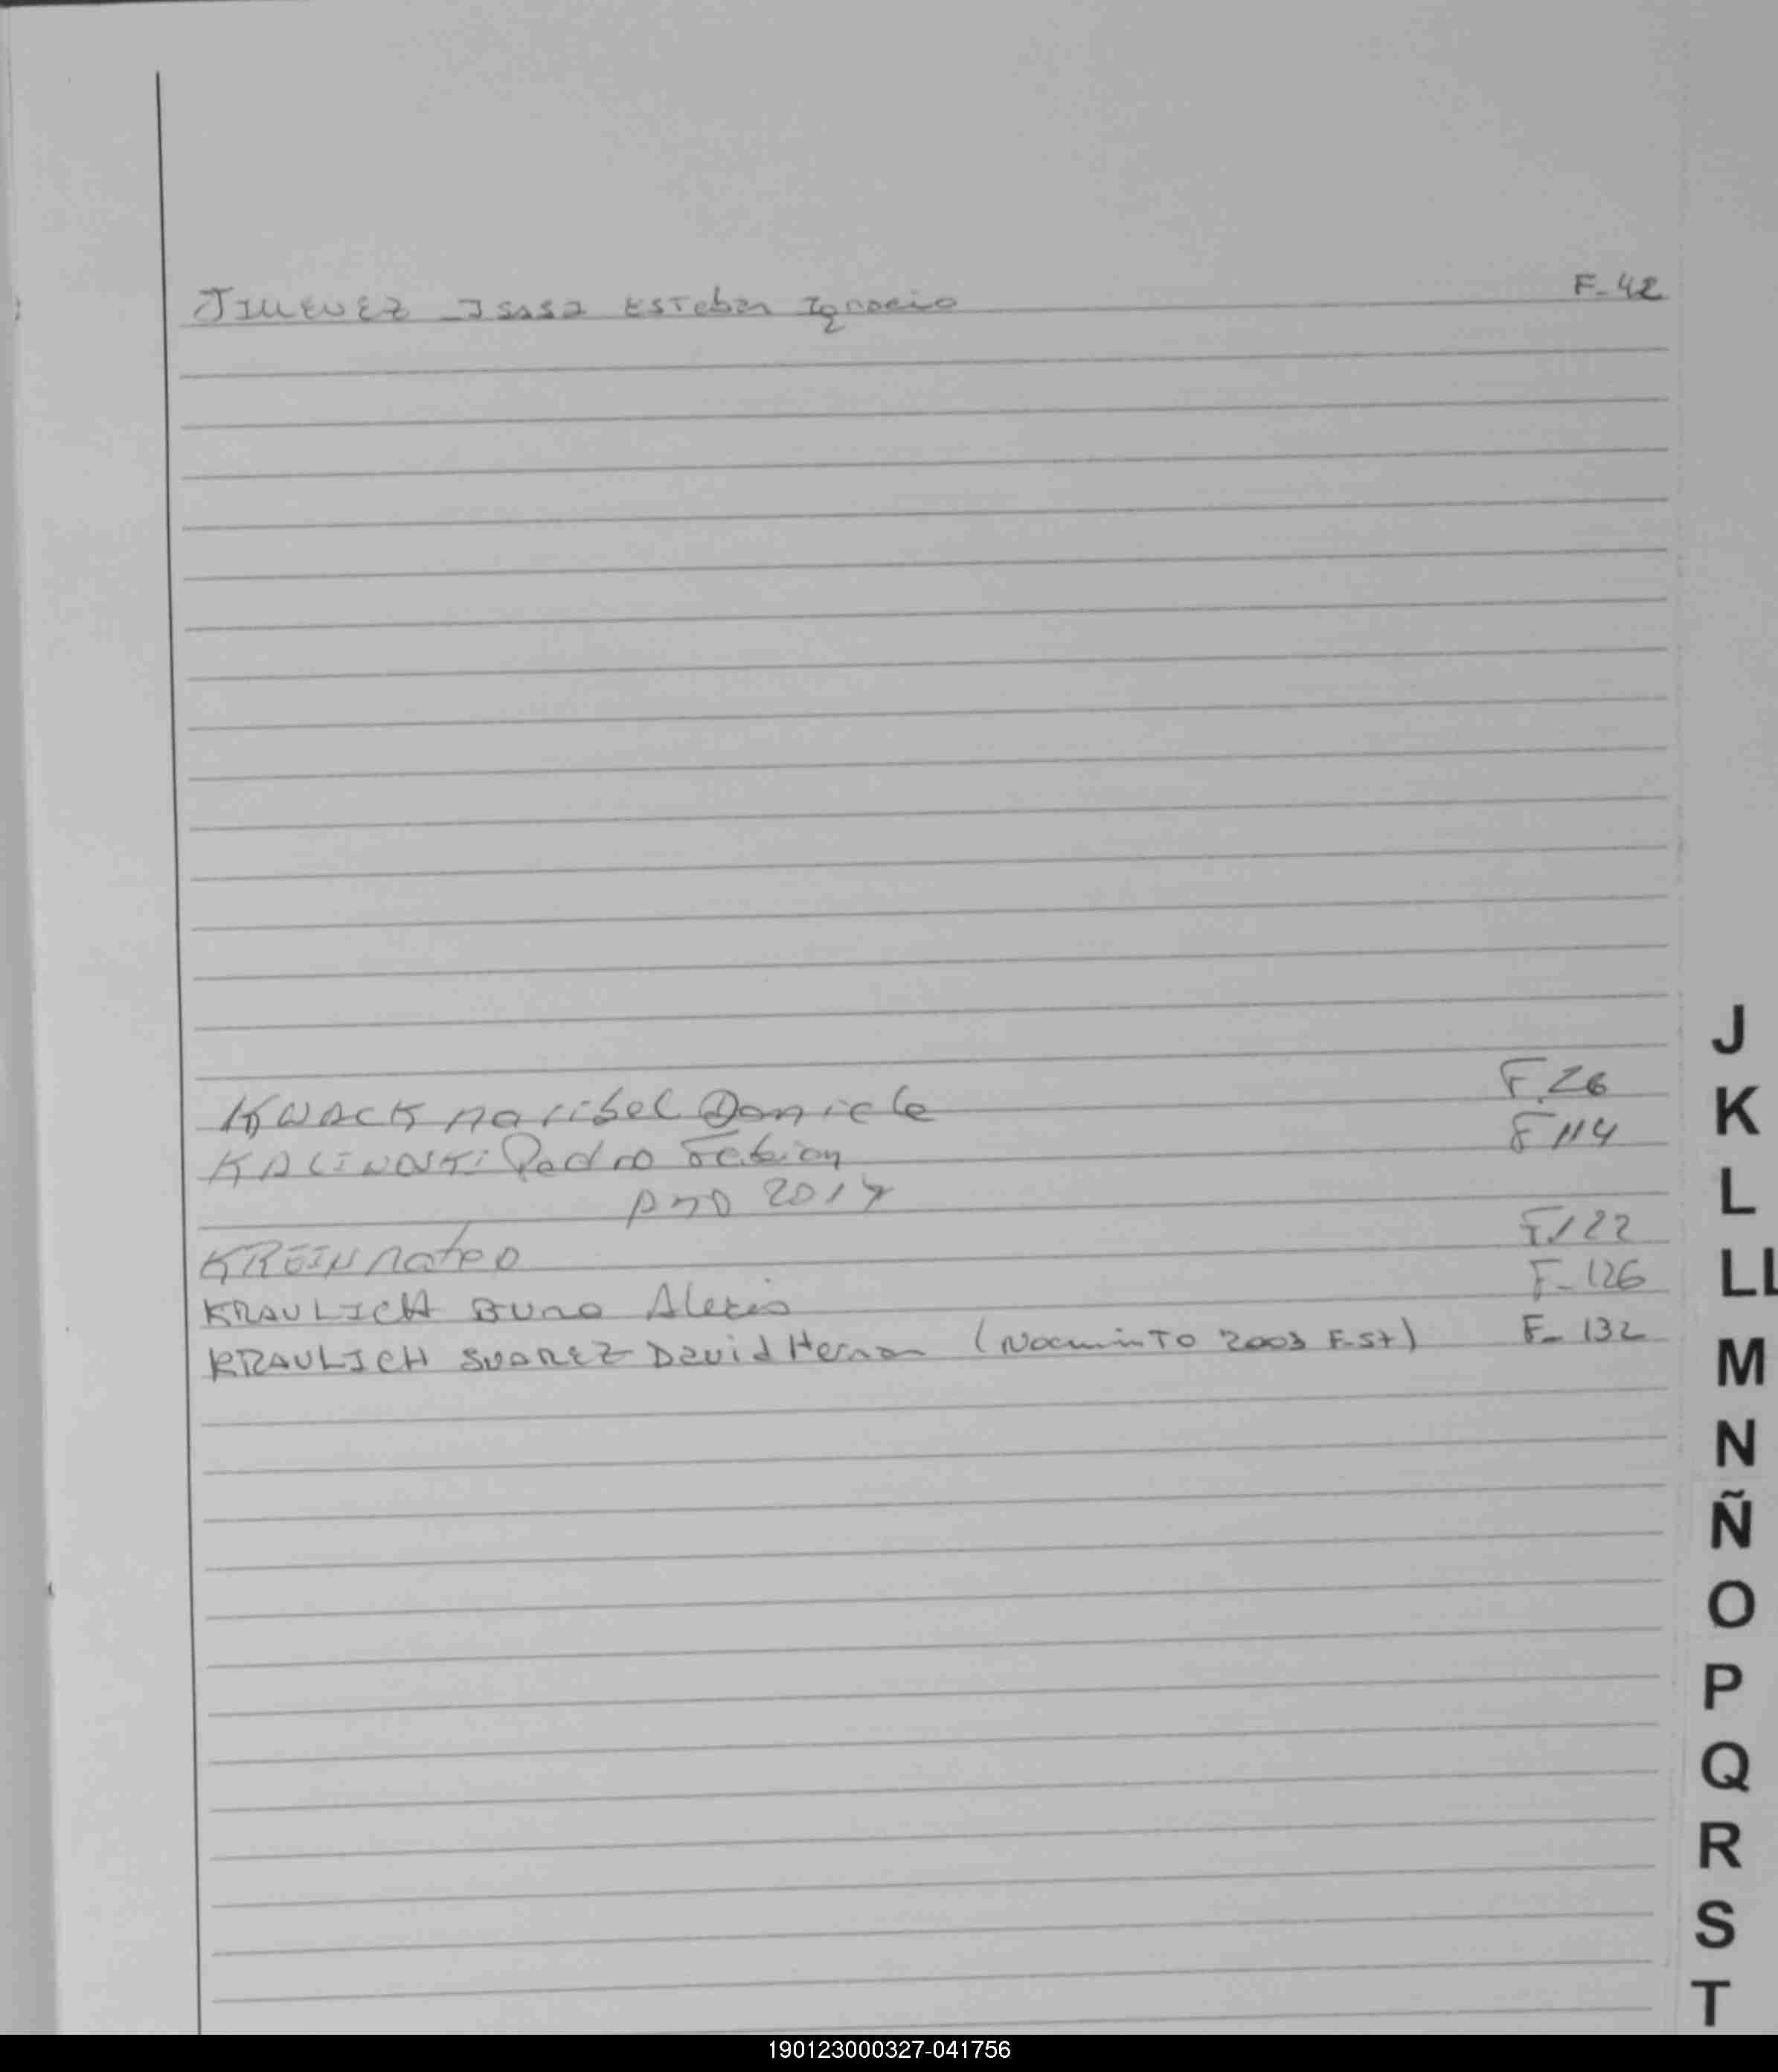 JIMENEZ Isasa Esteban Ignacio F-42
KNACK Maribel Daniele F.26
KALINOSKi Pedro Fabian F 114
Año 2017
KREIN Mateo F.122
KRAULICH Buno Alexis F-126
KRAULICH SUAREZ David Hernan (Nacminto 2003 F-57) F- 132
J
K
L
LL
M
N
Ñ
O
P
Q
R
S
T
190123000327-041756